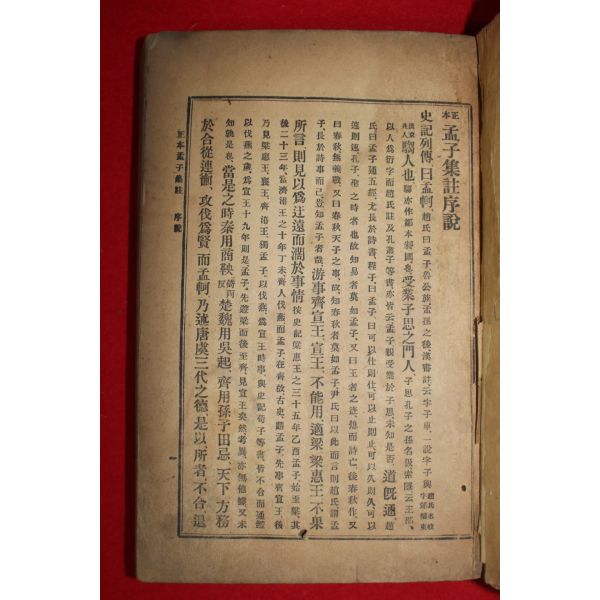 正本 孟子集註序說
史記列傳曰孟軻、趙氏曰孟子、魯公族孟孫之後、漢書註云字子車、一說字子輿 趙氏名岐字邠卿東
漢京兆人 騶人也、騶亦作鄒、本邾國也 受業子思之門人、子思孔子之孫、名伋、索隱云、王邵、
以人爲衍字、而趙氏註及孔叢子等書、亦皆云孟子親受業於子思、未知是否、道旣通、趙
氏曰、孟子通五經、尤長於詩書、程子曰、孟子曰可以仕則仕、可以止則止、可以久則久、可以
速則速、孔子聖之時者也、故知易者莫如孟子、又曰王者之迹熄而詩亡、後春秋作、又
曰春秋無義戰、又曰春秋天子之事、故知春秋者莫如孟子、尹氏曰以此而言則趙氏謂孟
子、長於詩書而已、豈知孟子者哉、游事齊宣王、宣王、不能用、適梁、梁惠王、不果
所言、則見以爲迂遠而濶於事情、按史記梁惠王之三十五年乙酉、孟子始至梁、其
後二十三年、當齊湣王之十年丁未、齊人伐燕、而孟子在齊、故古史、謂孟子、先事齊宣王、後
乃見梁惠王、襄王、齊湣王、獨孟子、以伐燕、爲宣王時事、與史記荀子等書、皆不合、而通鑑
以伐燕之歲、爲宣王十九年、則是孟子、先遊梁而後至齊、見宣王矣、然考異、亦無他據、又未
知孰是也、當是之時、秦用商鞅、於兩反 楚魏用吳起、齊用孫子田忌、天下方務
於合從連衡、攻伐爲賢、而孟軻乃述唐虞三代之德、是以所者、不合、退
正本孟子集註 序說